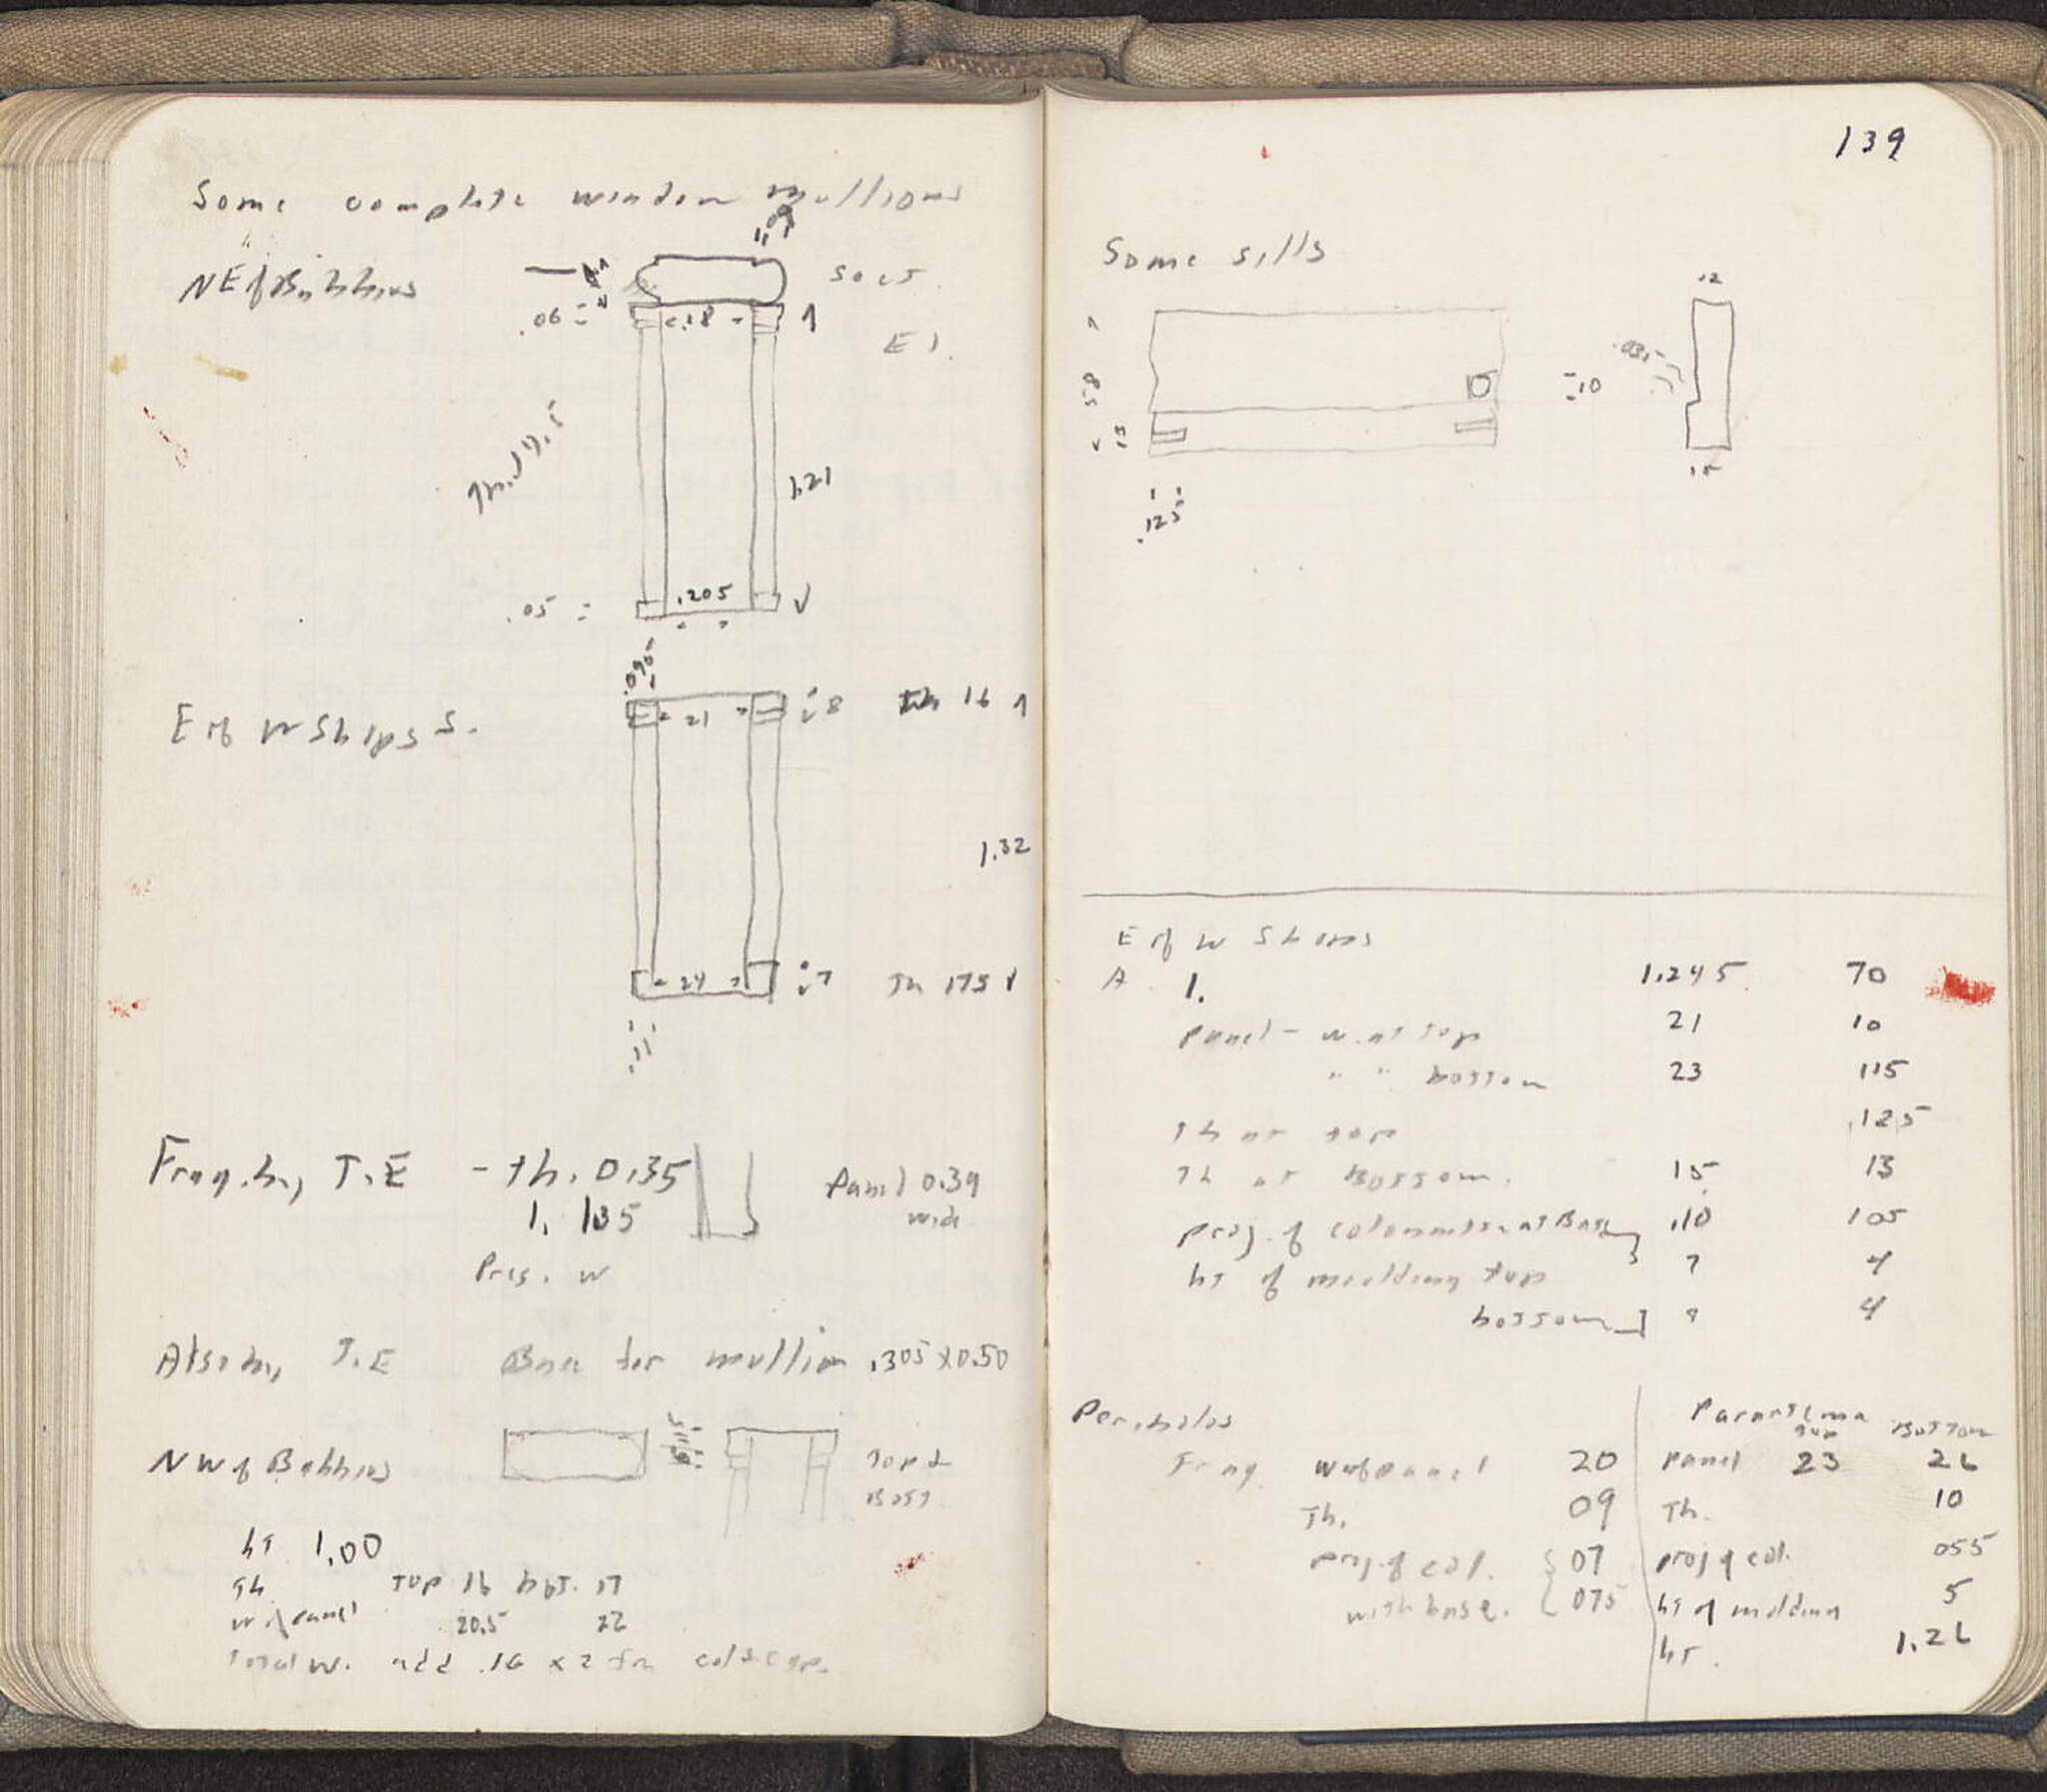 Some complete window mullions
NE of Bathhous
.06
.18
Sect.
E).
1.21
.05
.205
E of W Shops S.
.095
21
8
Th 16
1.32
24
7
Th 175
.11
Frag. by T.E - th. 0.35
Panel 0.39
wid.
Pres. w
Also by T.E Base for mullion .305 x 0.50
NW of Bathhous
Top &
Bott.
ht 1.00
Th top 16 bot. 17
w of panel 20.5 22
Total w. add .16 x 2 for col & cap.
139
Some sills
12
.035
58
10
13
15
.125
E of W Shops
A 1. 1.245 70
Panel - w. at top 21 10
" " bottom 23 115
Th at top .125
Th at Bottom. 15 13
proj. of colonnette at Base .10 105
ht of molding top 7 4
bottom 9 4
Peribolos
Frag. w of panel 20
Th. 09
proj. of col. 07
with base. 075
Parastema
Top Bottom
Panel 23 26
Th. 10
proj of col. 055
ht of molding 5
ht. 1.26